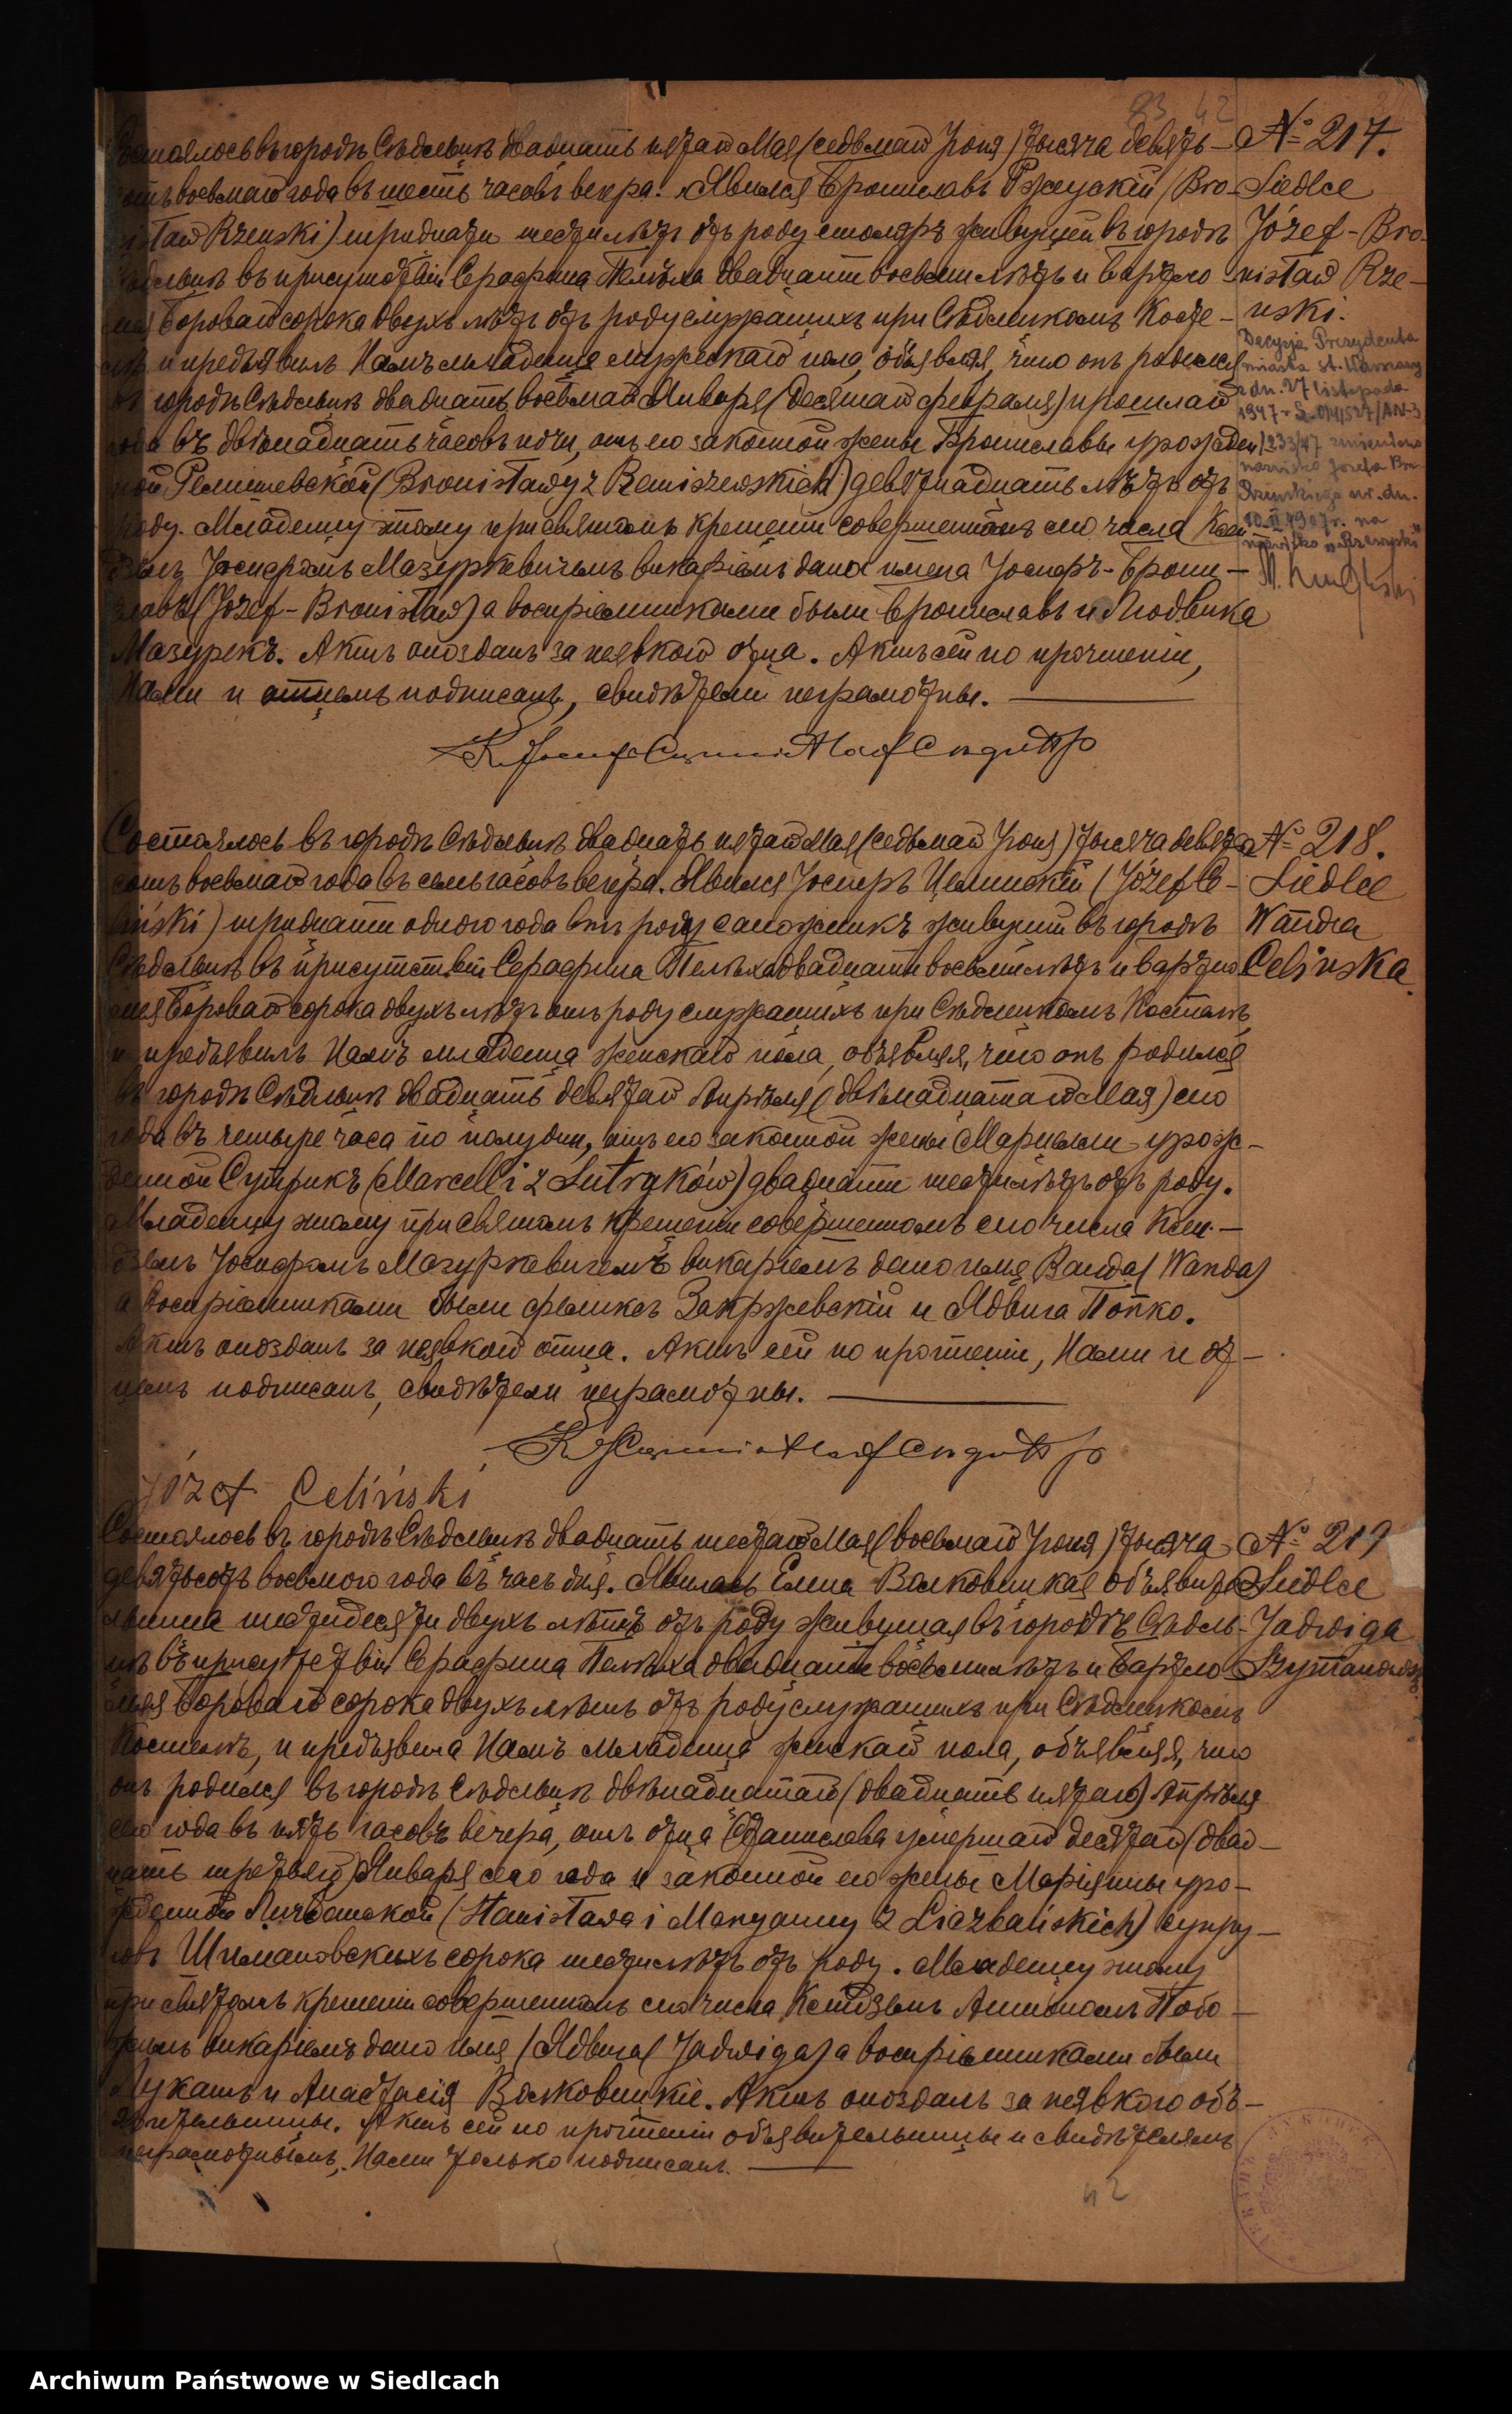 93 42
Состоялось въ городѣ Сѣдльцѣ двадцать пятаго Мая (седьмаго Іюня) тысяча девять-
сотъ восьмаго года въ шесть часовъ вечера. Явился Брониславъ Ржеускій (Bro-
nisław Rzeuski) тридцати шести лѣтъ отъ роду столяръ живущій въ городѣ
Сѣдльцѣ въ присутствіи Серафина Пелѣха двадцати восьми лѣтъ и Варѳоло-
мея Бороваго сорока двухъ лѣтъ отъ роду служащихъ при Сѣдлецкомъ Косте-
лѣ и предъявилъ Намъ младенца мужескаго пола, объявляя, что онъ родился
въ городѣ Сѣдльцѣ двадцать восьмаго Января (десятаго февраля) прошлаго
года въ двѣнадцать часовъ ночи, отъ его законной жены Брониславы урожден-
ной Ремишевской (Bronisławy z Remiszewskich) девятнадцать лѣтъ отъ
роду. Младенцу этому при святомъ крещеніи совершенномъ сего числа Ксен-
дзомъ Іосифомъ Мазуркевичемъ викаріемъ дано имена Іосифъ-Брони-
славъ (Józef-Bronisław) а воспріемниками были Брониславъ и Людвика
Мазурекъ. Актъ опозданъ за неявкою отца. Актъ сей по прочтеніи,
Нами и отцемъ подписанъ, свидѣтели неграмотны.
№ 217.
Siedlce
Józef-Bro-
nisław Rze-
uski.
Decyzją Prezydenta
miasta st. Warszawy
z dn. 27 listopada
1947 r.
zmieniono
nazwisko Józefa Bro.
Rzeuskiego ur. dn.
10.II.1907 r. na
nazwisko "Rzewuski"
Состоялось въ городѣ Сѣдльцѣ двадцать пятаго Мая (седьмаго Іюня) тысяча девять-
сотъ восьмаго года въ семь часовъ вечера. Явился Іосифъ Целинскій (Józef Ce-
liński) тридцати одного года отъ роду сапожникъ живущій въ городѣ
Сѣдльцѣ въ присутствіи Серафина Пелѣха двадцати восьми лѣтъ и Варѳоло-
мея Бороваго сорока двухъ лѣтъ отъ роду служащихъ при Сѣдлецкомъ Костелѣ,
и предъявилъ Намъ младенца женскаго пола, объявляя, что онъ родился
въ городѣ Сѣдльцѣ двадцать девятаго Апрѣля (двѣнадцатаго Мая) сего
года въ четыре часа по полудни, отъ его законной жены Марцелли урож-
денной Сутрикъ (Marcelli z Sutryków) двадцати шести лѣтъ отъ роду.
Младенцу этому при святомъ крещеніи совершенномъ сего числа Ксен-
дзомъ Іосифомъ Мазуркевичемъ викаріемъ дано имя Ванда (Wanda)
а воспріемниками были Феликсъ Закржевскій и Ядвига Попко.
Актъ опозданъ за неявкою отца. Актъ сей по прочтеніи, Нами и от-
цемъ подписанъ, свидѣтели неграмотны.
№ 218.
Siedlce
Wanda
Celinska
Józef Celiński
Состоялось въ городѣ Сѣдльцѣ двадцать шестаго Мая (восьмаго Іюня) тысяча
девятьсотъ восьмого года въ часъ дня. Явилась Елена Волковицкая объявите-
льница шестидесяти двухъ лѣтъ отъ роду живущая въ городѣ Сѣдль-
цѣ въ присутствіи Серафина Пелѣха двадцати восьми лѣтъ и Варѳоло-
мея Бороваго сорока двухъ лѣтъ отъ роду служащихъ при Сѣдлецкомъ
Костелѣ, и предъявила Намъ младенца женскаго пола, объявляя, что
онъ родился въ городѣ Сѣдльцѣ двѣнадцатаго (двадцать пятаго) Апрѣля
сего года въ пять часовъ вечера, отъ отца Станислава умершаго десятаго (двад-
цать третьяго) Января сего года и законной его жены Маріянны уро-
жденной Личбанской (Stanisława i Maryanny z Liczbańskich) супру-
говъ Шимановскихъ сорока шести лѣтъ отъ роду. Младенцу этому
при святомъ крещеніи совершенномъ сего числа Ксендзомъ Антономъ Побо-
жимъ викаріемъ дано имя Ядвига (Jadwiga) а воспріемниками были
Лукашъ и Анастасія Волковицкіе. Актъ опозданъ за неявкою объ-
явительницы. Актъ сей по прочтеніи объявительницы и свидѣтелямъ
неграмотнымъ, Нами только подписанъ.
№ 219
Siedlce
Jadwiga
Szymanowska
42
Archiwum Państwowe w Siedlcach